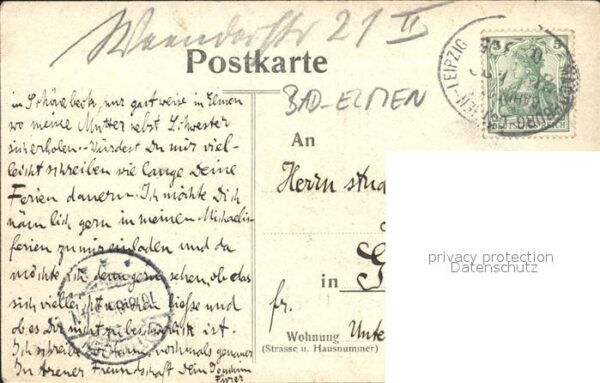 Weenderstr 21 II
Postkarte
BAD-ELMEN
in Schönebeck, nur gastweise in Elmen
wo meine Mutter nebst Schwester
sich erholen. Würdest Du mir viel-
leicht schreiben wie lange Deine
Ferien dauern. Ich möchte Dich
nämlich gern in meinen Michaelis-
ferien zu mir einladen und da
möchte ich denn gern sehen, ob das
sich vielleicht machen ließe und
ob es Dir nicht zu
ist.
Ich schreibe Dir dann nochmals genauer
In treuer Freundschaft Dein
5
LEIPZIG
An
Herrn stud
in
G
fr.
Wohnung
Unte
(Strasse u. Hausnummer)
privacy protection
Datenschutz